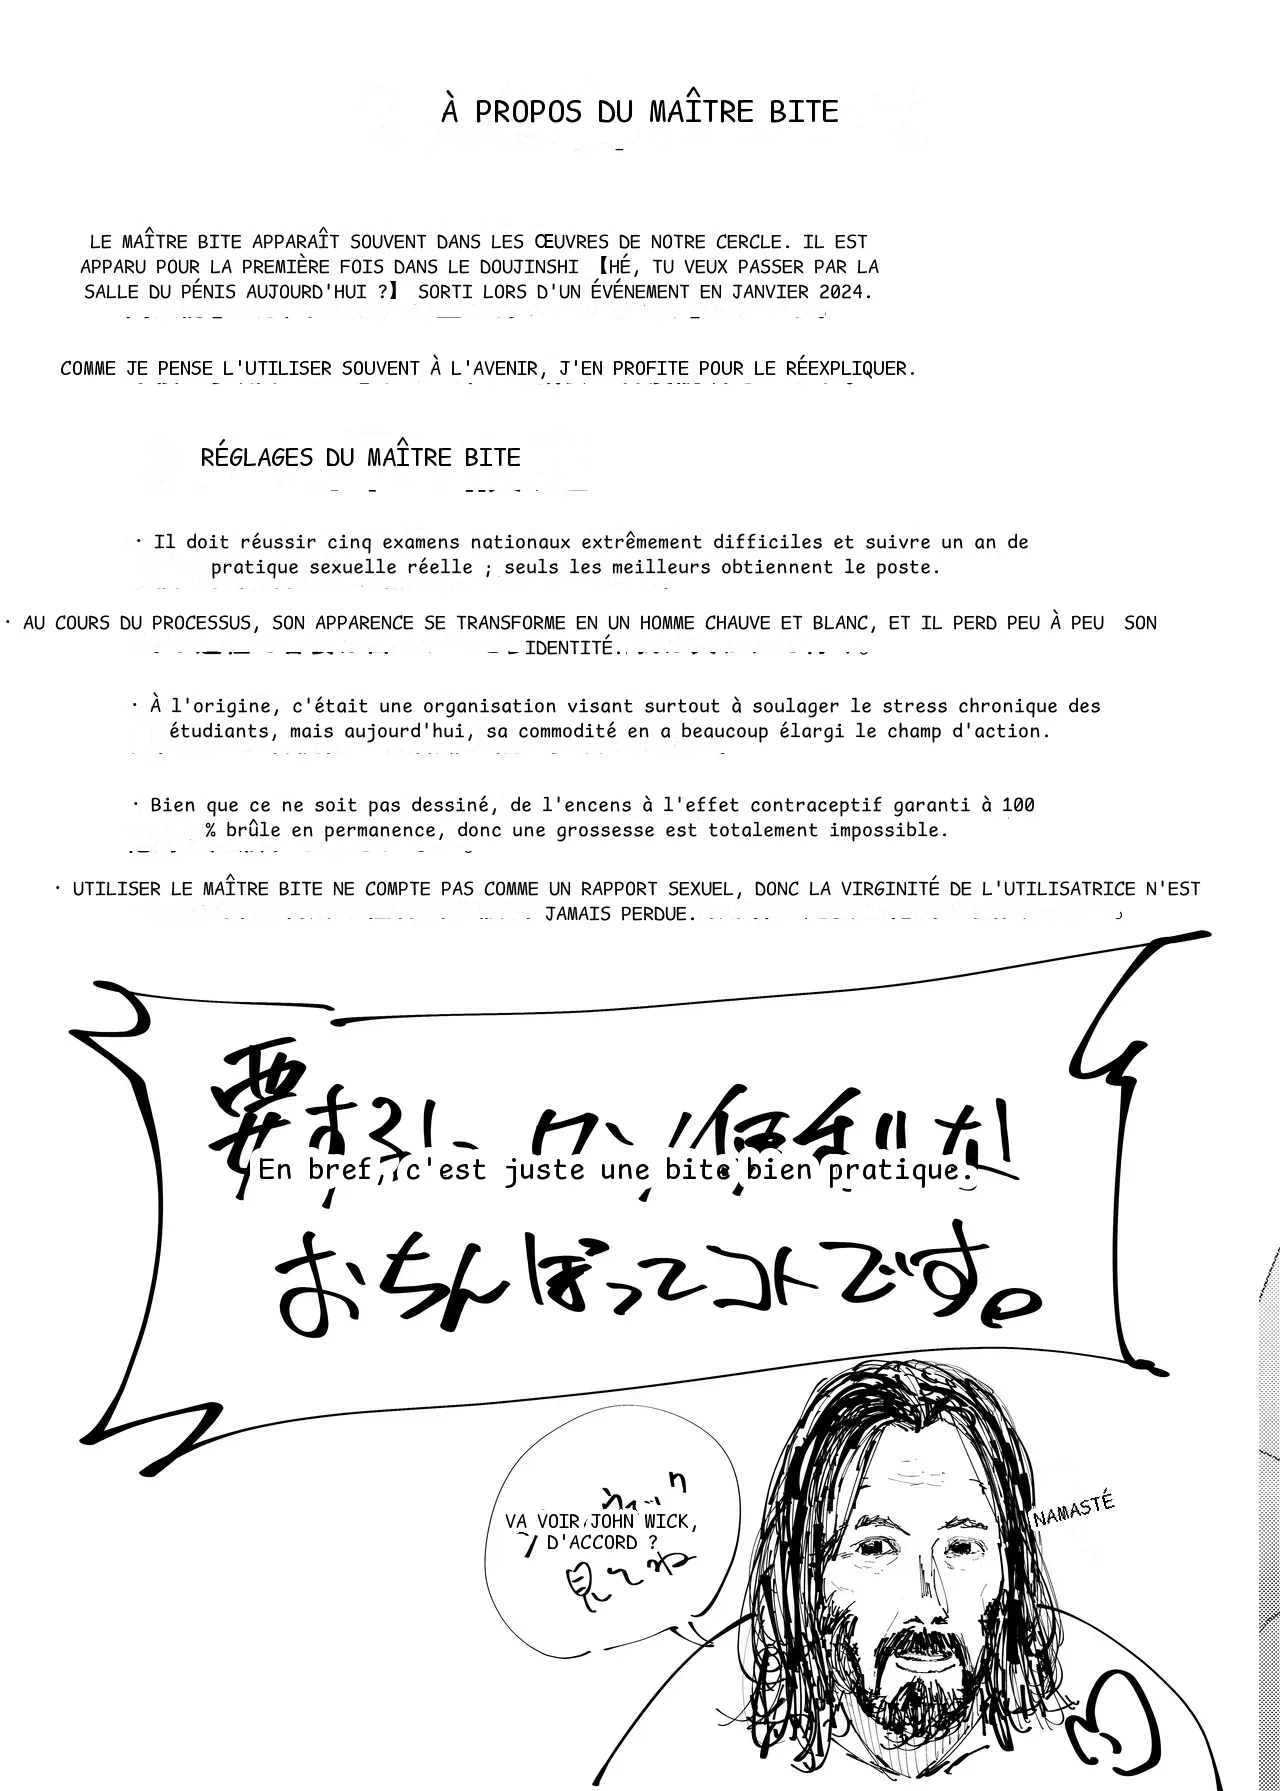 À PROPOS DU MAÎTRE BITE
LE MAÎTRE BITE APPARAÎT SOUVENT DANS LES ŒUVRES DE NOTRE CERCLE. IL EST
APPARU POUR LA PREMIÈRE FOIS DANS LE DOUJINSHI 【HÉ, TU VEUX PASSER PAR LA
SALLE DU PÉNIS AUJOURD'HUI ?】 SORTI LORS D'UN ÉVÉNEMENT EN JANVIER 2024.
COMME JE PENSE L'UTILISER SOUVENT À L'AVENIR, J'EN PROFITE POUR LE RÉEXPLIQUER.
RÉGLAGES DU MAÎTRE BITE
· Il doit réussir cinq examens nationaux extrêmement difficiles et suivre un an de
pratique sexuelle réelle ; seuls les meilleurs obtiennent le poste.
· AU COURS DU PROCESSUS, SON APPARENCE SE TRANSFORME EN UN HOMME CHAUVE ET BLANC, ET IL PERD PEU À PEU SON
IDENTITÉ.
· À l'origine, c'était une organisation visant surtout à soulager le stress chronique des
étudiants, mais aujourd'hui, sa commodité en a beaucoup élargi le champ d'action.
· Bien que ce ne soit pas dessiné, de l'encens à l'effet contraceptif garanti à 100
% brûle en permanence, donc une grossesse est totalement impossible.
· UTILISER LE MAÎTRE BITE NE COMPTE PAS COMME UN RAPPORT SEXUEL, DONC LA VIRGINITÉ DE L'UTILISATRICE N'EST
JAMAIS PERDUE.
En bref, c'est juste une bite bien pratique.
おちんぽってコトです。
VA VOIR JOHN WICK,
D'ACCORD ?
見てね
NAMASTÉ